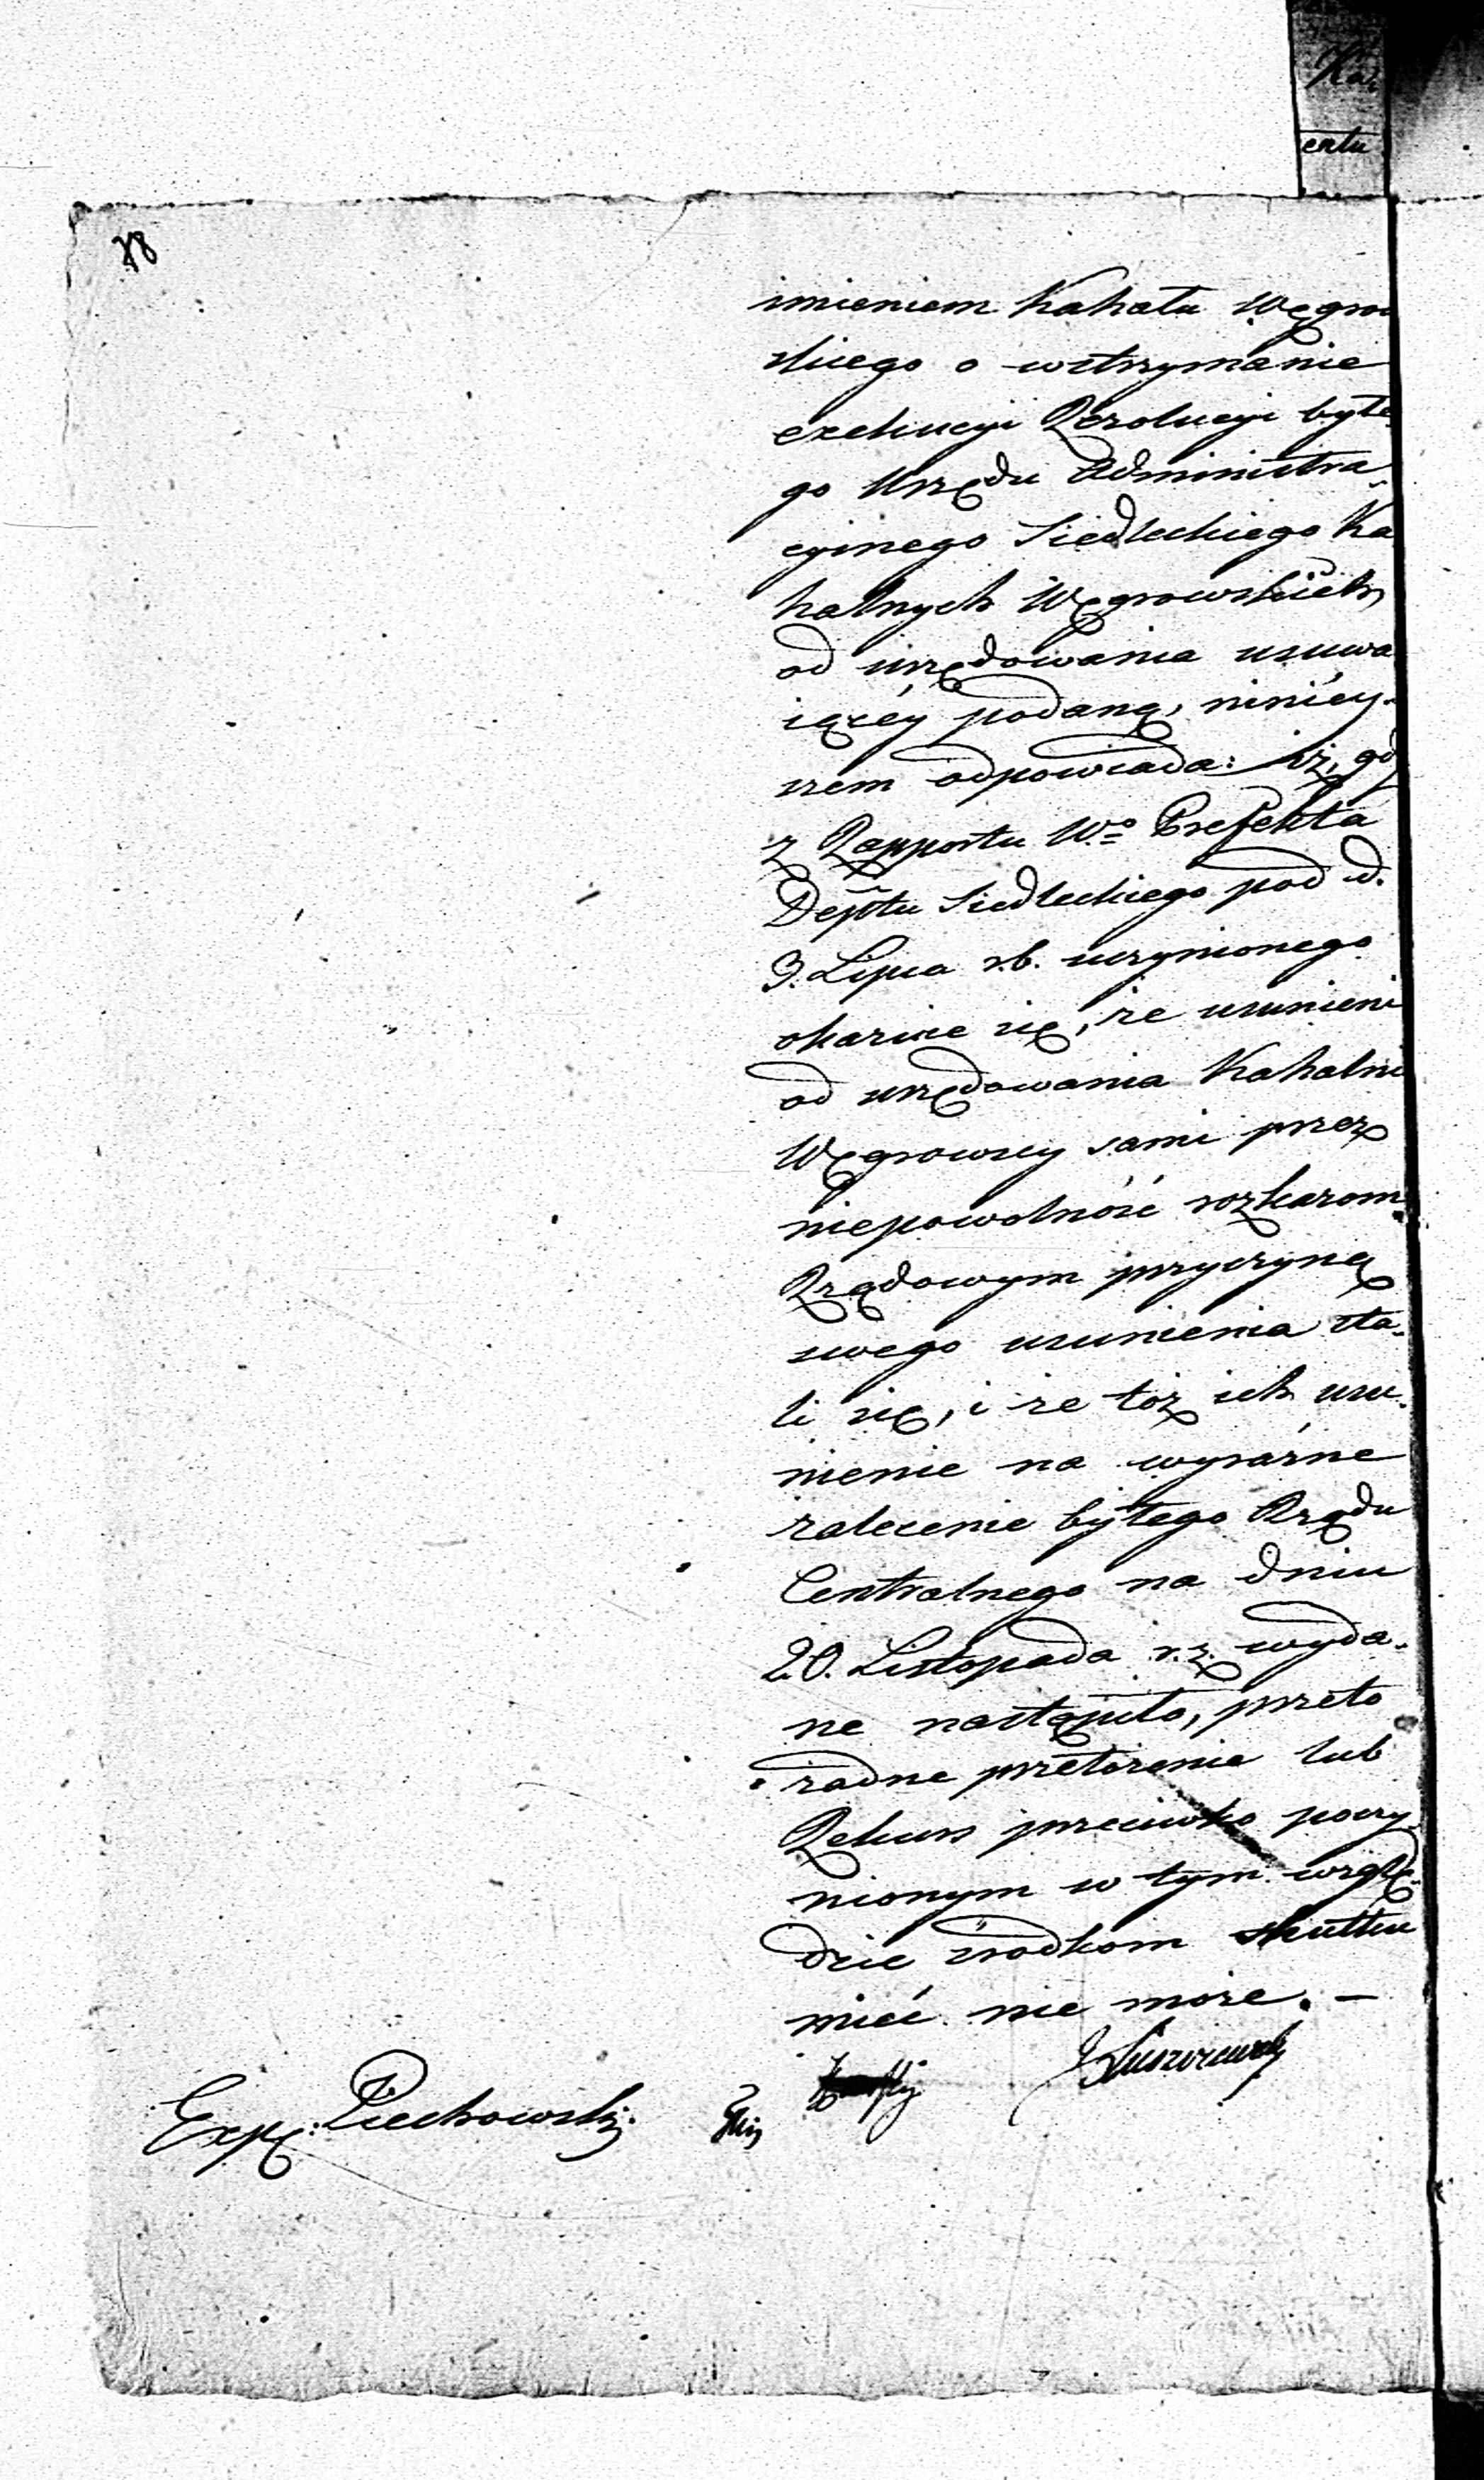 Ka
entu
78
imieniem Kahału Węgrow
skiego o wstrzymanie
exekucyi Rezolucyi byłe
go Urzędu Administra-
cyinego Siedleckiego Ka
halnych Węgrowskich
od urzędowania usuwa
iącéy podaną, niniéy-
szem odpowiada: iż, gdy
z Rapportu W.º Prefekta
Deptu Siedleckiego pod d.
3. Lipca r.b. uczynionego
okazuie się, że usunieni
od urzędowania Kahalni
Węgrowscy sami przez
niepowolność rozkazom
Rządowym przyczyną
swego usunienia sta-
li się, i że toż ich usu-
nienie na wyraźne
zalecenie byłego Rządu
Centralnego na dniu
20. Listopada r.z. wyda-
ne nastąpiło, przeto
żadne przełożenie lub
Rekurs przeciwko poczy
nionym w tym wzglę-
dzie środkom skutku
mieć nie może. –
Łuszczewski
Exp: Piechowski